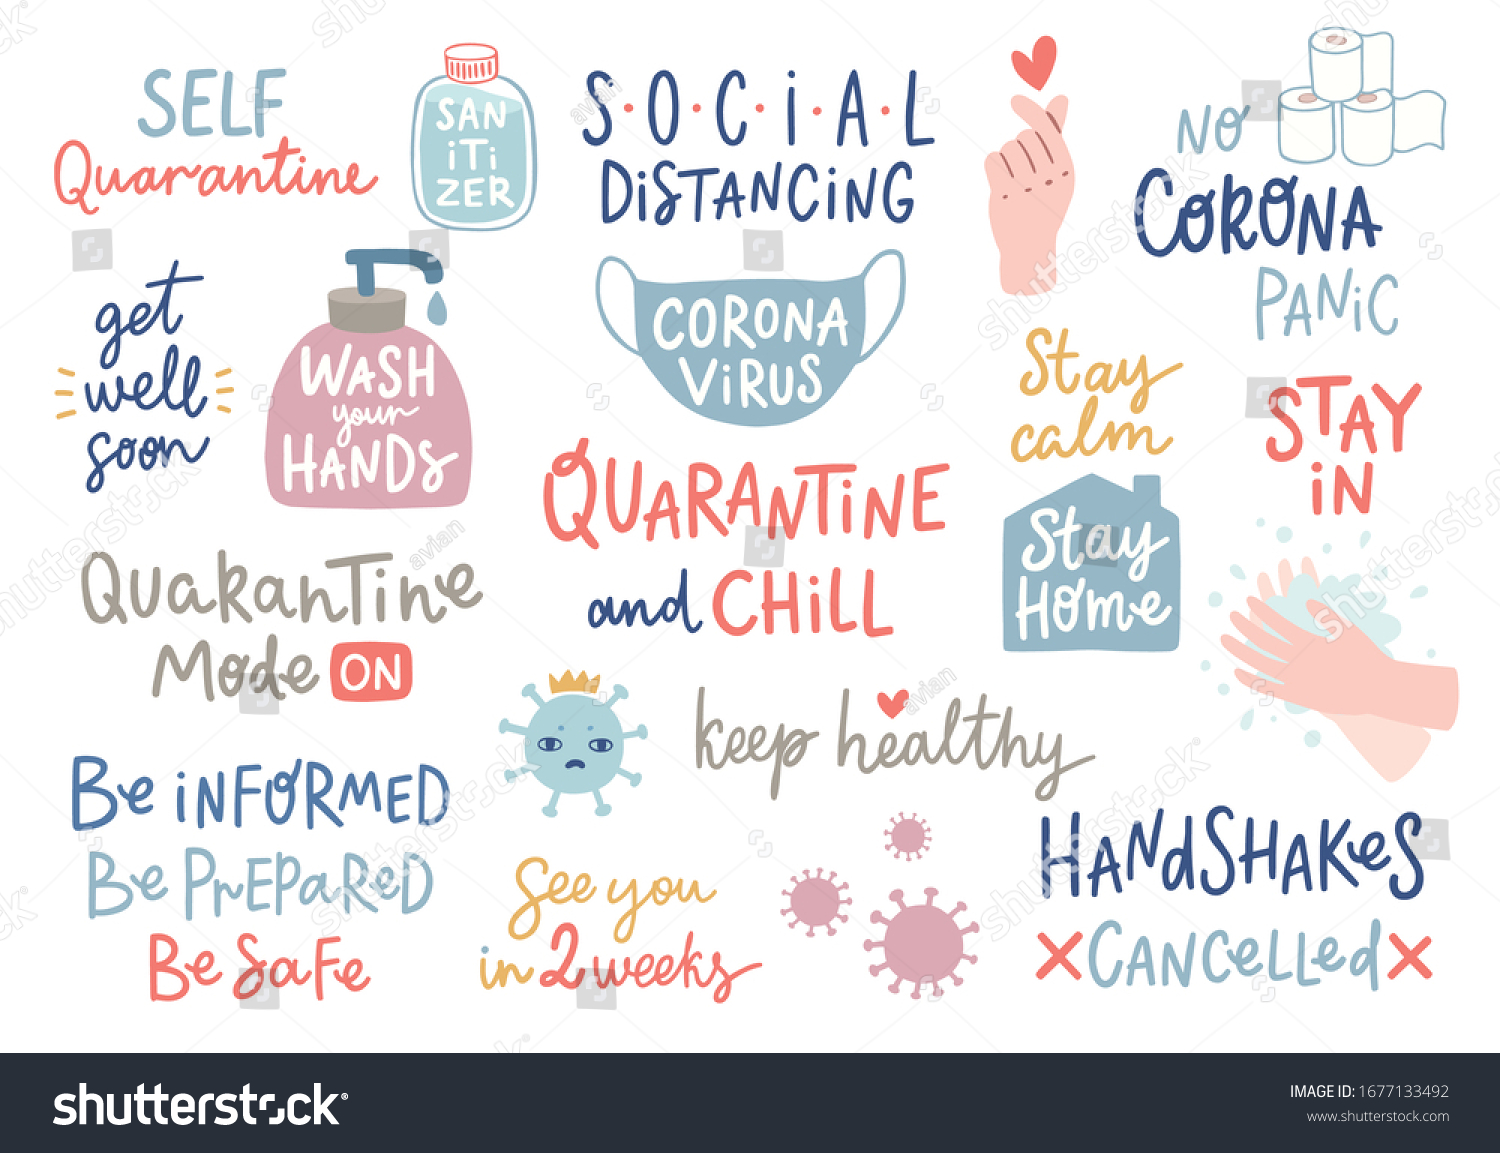 SELF
Quarantine
SAN
iTi
ZER
S·O·C·i·A·L
DiSTANCiNG
NO
CORONA
PANiC
get
well
soon
WASH
your
HANDS
CORONA
ViRUS
Stay
calm
STAY
iN
QUARANTiNE
and CHiLL
Stay
Home
QuaRanTine
Mode ON
keep healthy
Be iNFORMED
Be PrEPaReD
Be SaFe
See you
in 2 weeks
HANdSHAKeS
CANCeLLed
shutterstock
IMAGE ID: 1677133492
www.shutterstock.com
shutterstock
avian